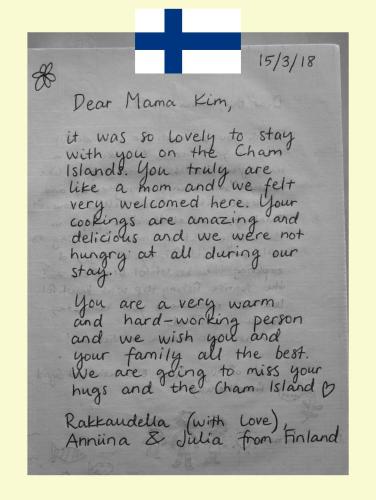 15/3/18
Dear Mama Kim,
it was so lovely to stay
with you on the Cham
Islands. You truly are
like a mom and we felt
very welcomed here. Your
cookings are amazing and
delicious and we were not
hungry at all during our
stay.
You are a very warm
and hard-working person
and we wish you and
your family all the best.
We are going to miss your
hugs and the Cham Island ♡
Rakkaudella (with love),
Anniina & Julia from Finland